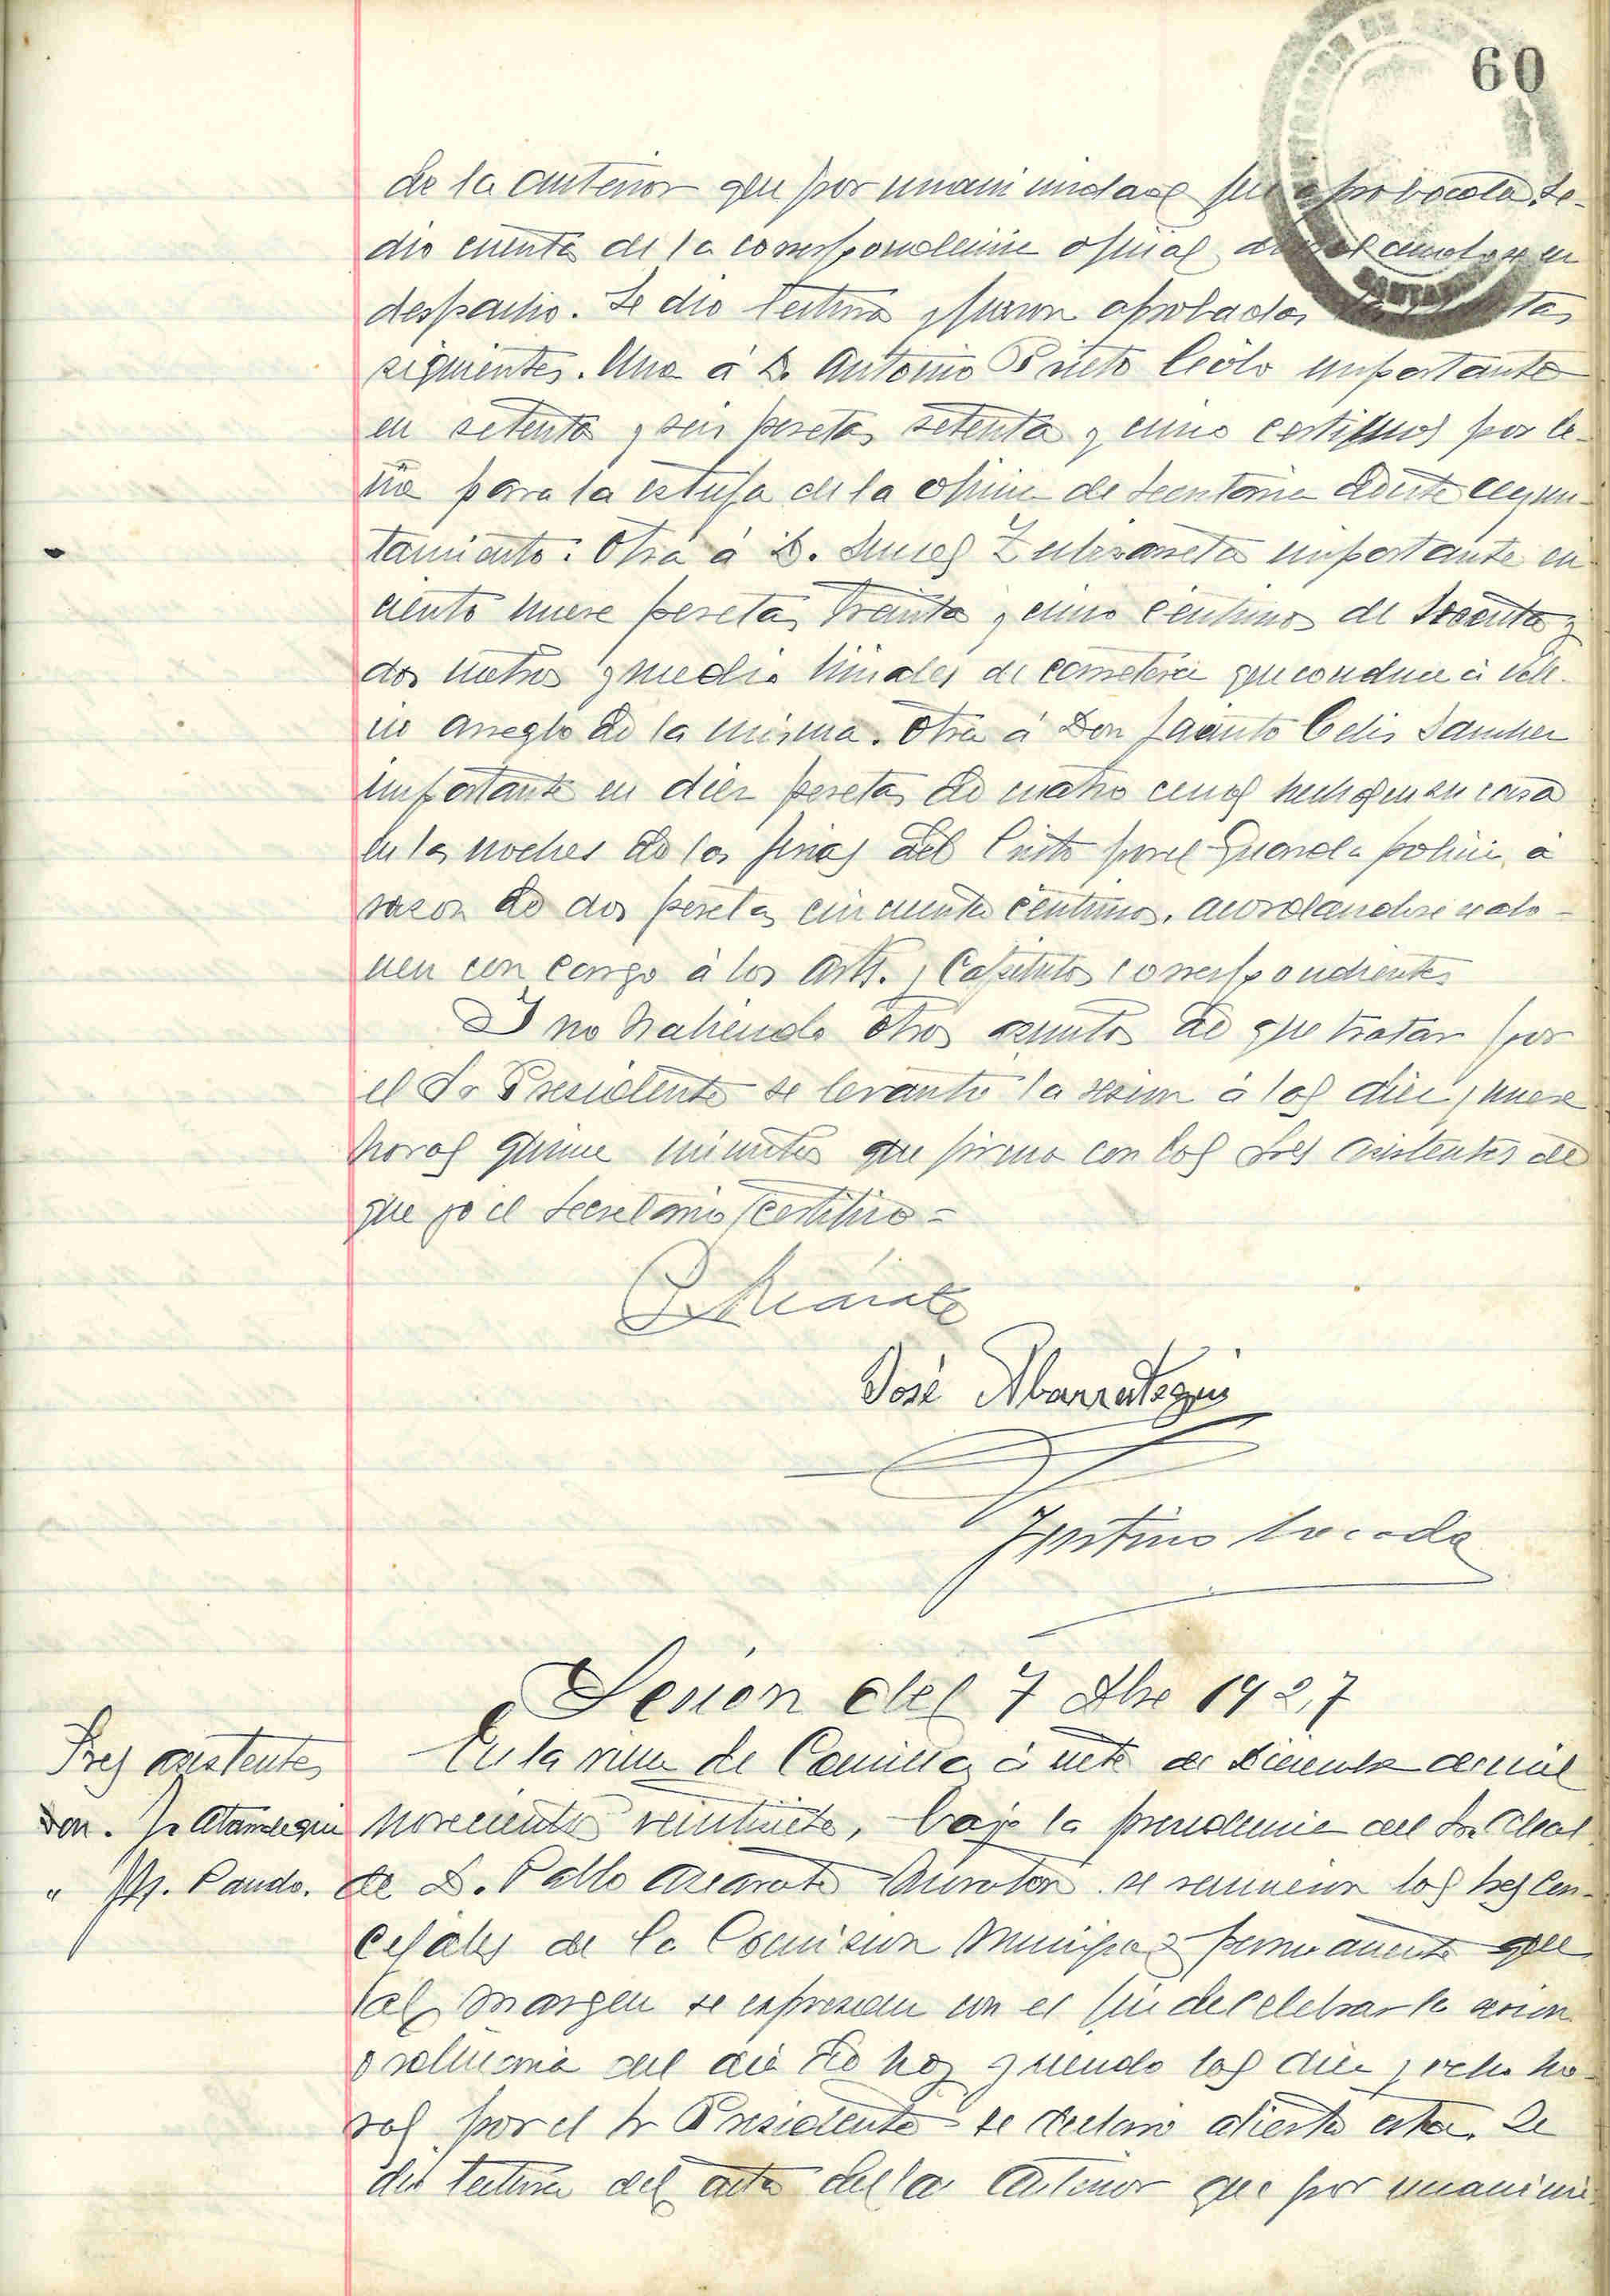 60
de la anterior que por unanimidad fue aprobada. Se
dio cuenta de la correspondencia oficial, acordandose su
despacho. Se dio lectura y fueron aprobadas las cuentas
siguientes. Una á D. Antonio Prieto importante
en setenta y seis pesetas setenta y cinco centimos por le-
ña para la estufa de la oficina de Secretaria de este ayun-
tamiento: Otra á D. importante en
ciento nueve pesetas treinta y cinco centimos de treinta y
dos metros y medio lineales de carretera que conduce á
arreglo de la misma. Otra á Don Jacinto Celis Sanchez
importante en diez pesetas de cuatro cenas hechas en su casa
en las noches de las ferias del Cristo por el Guardia policia, á
razon de dos pesetas cincuenta centimos, acordandose se abo-
nen con cargo á los arts. y Capitulos correspondientes
Y no habiendo otros asuntos de que tratar por
el Sr Presidente se levantó la sesion á las diez y nueve
horas quince minutos que firma con los Sres asistentes de
que yo el Secretario certifico =
P. Azcárate
José Abarrategui
Justino
Sesion del 7 Dbre 1927
Sres asistentes
Don. 
" M. Pando.
En la villa de Comillas á siete de Diciembre de mil
novecientos veintisiete, bajo la presidencia del Sr. Alcal
de D. Pablo Azcarate se reunieron los Sres Con-
cejales de la Comision Municipal permanente que
al margen se expresan con el fin de celebrar la sesion
ordinaria del dia de hoy y siendo las diez y ocho ho-
ras por el Sr Presidente se declaro abierta esta. Se
dio lectura del acta de la anterior que por unanimi